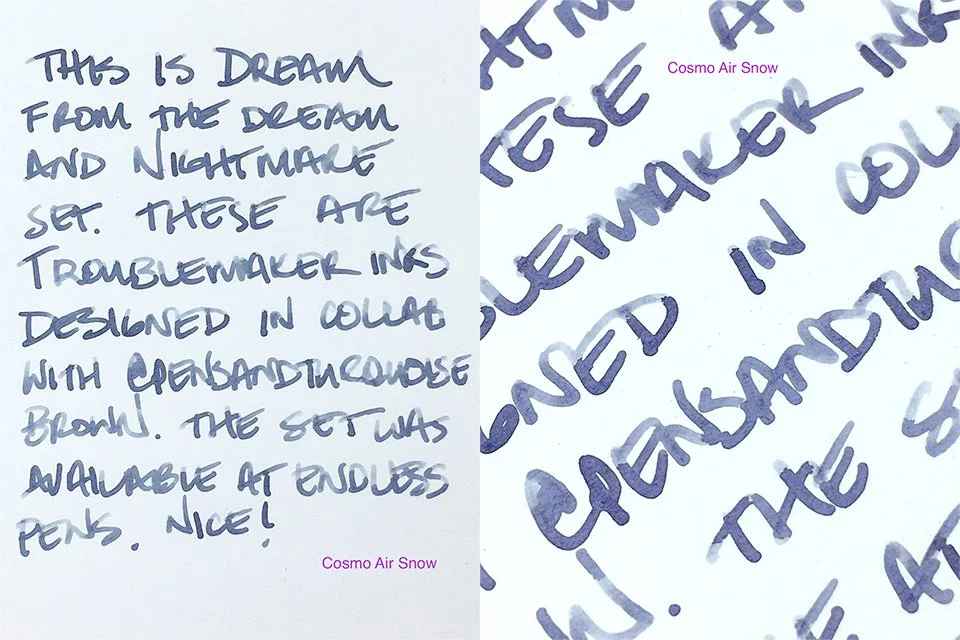 THIS IS DREAM
FROM THE DREAM
AND NIGHTMARE
SET. THESE ARE
TROUBLEMAKER INKS
DESIGNED IN COLLAB
WITH @PENSANDTURQUOISE
BROWN. THE SET WAS
AVAILABLE AT ENDLESS
PENS. NICE!
Cosmo Air Snow
Cosmo Air Snow
TESE A
BLEMAKER INK
GNED IN COL
@PENSANDTURQ
N. THE S
E AT